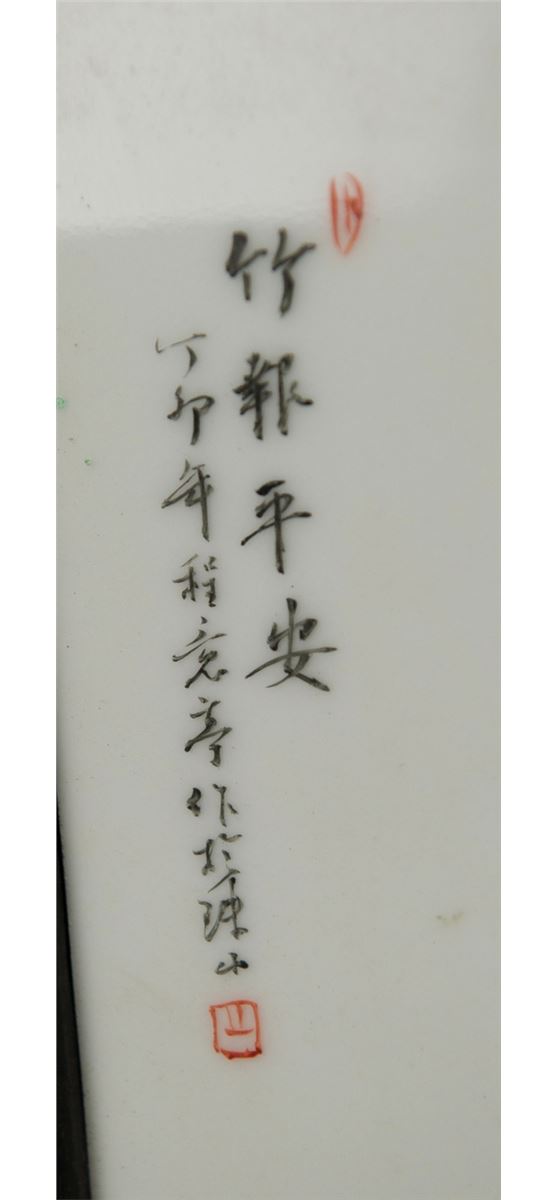 竹報平安
丁卯年程意亭作於珠山